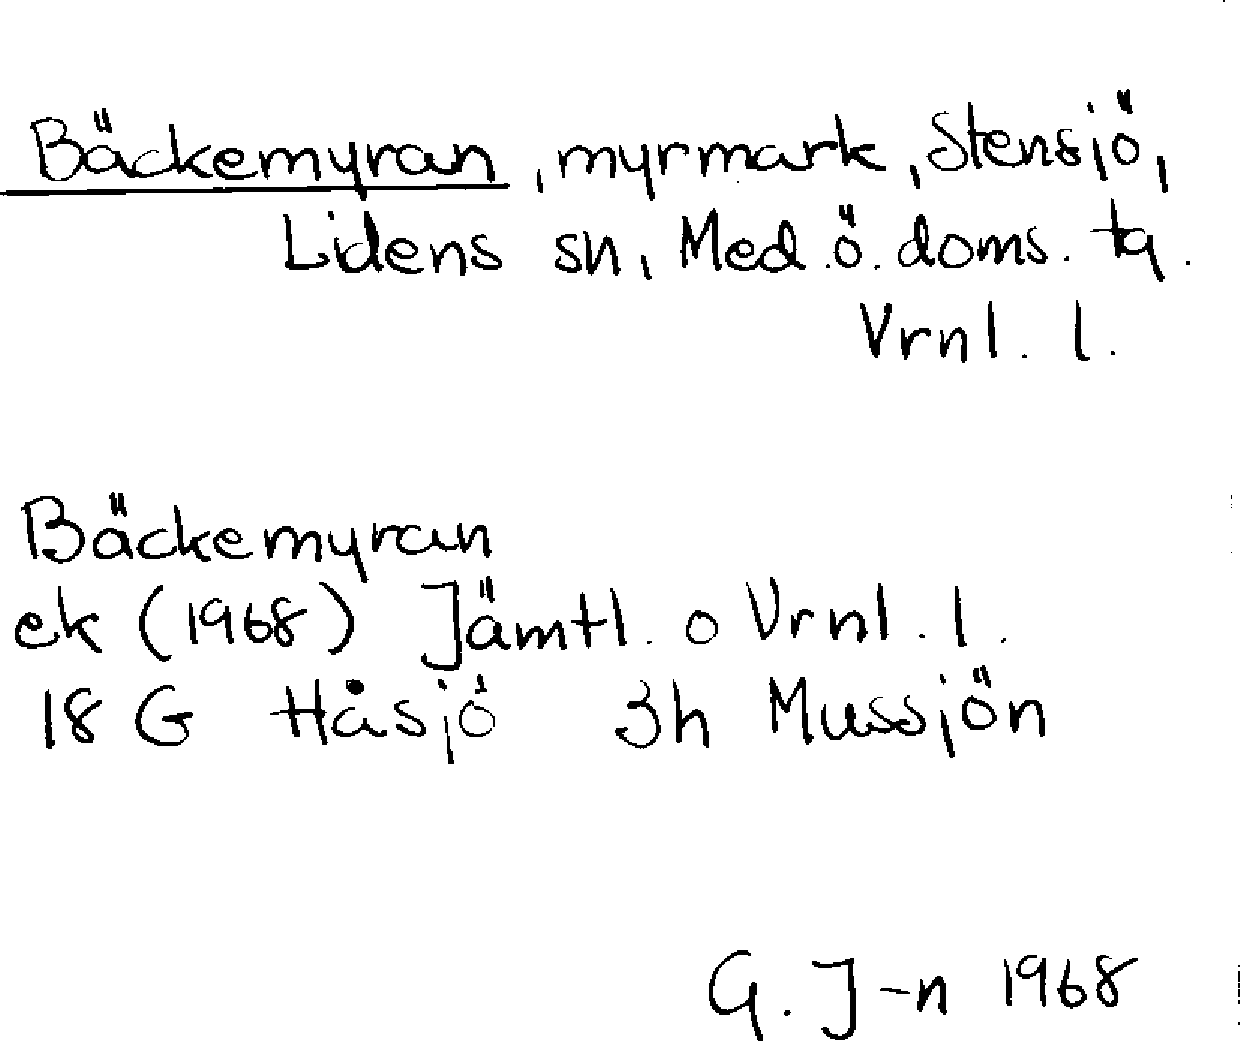 Bäckemyran, myrmark, Stensjö,
Lidens sn, Med.ö.doms. tg.
Vrnl. l.
Bäckemyran
ek (1968) Jämtl. o Vrnl. l.
18 G Håsjö 3h Mussjön
G. J-n 1968